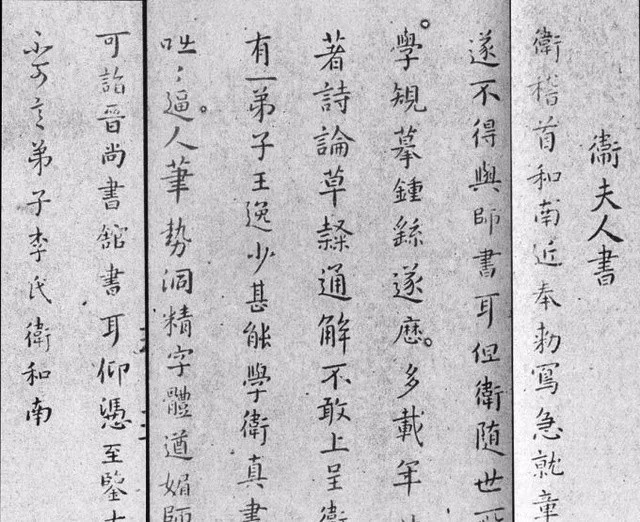 衞夫人書
衛稽首和南近奉勑寫急就章
遂不得與師書耳但衛随世所
學規摹鍾繇遂歷多載年
著詩論草隸通解不敢上呈衛
有一弟子王逸少甚能學衛真書
咄〻逼人筆勢洞精字體遒媚師
可詣晉尚書舘書耳仰憑至鑒大
不可言弟子李氏衛和南